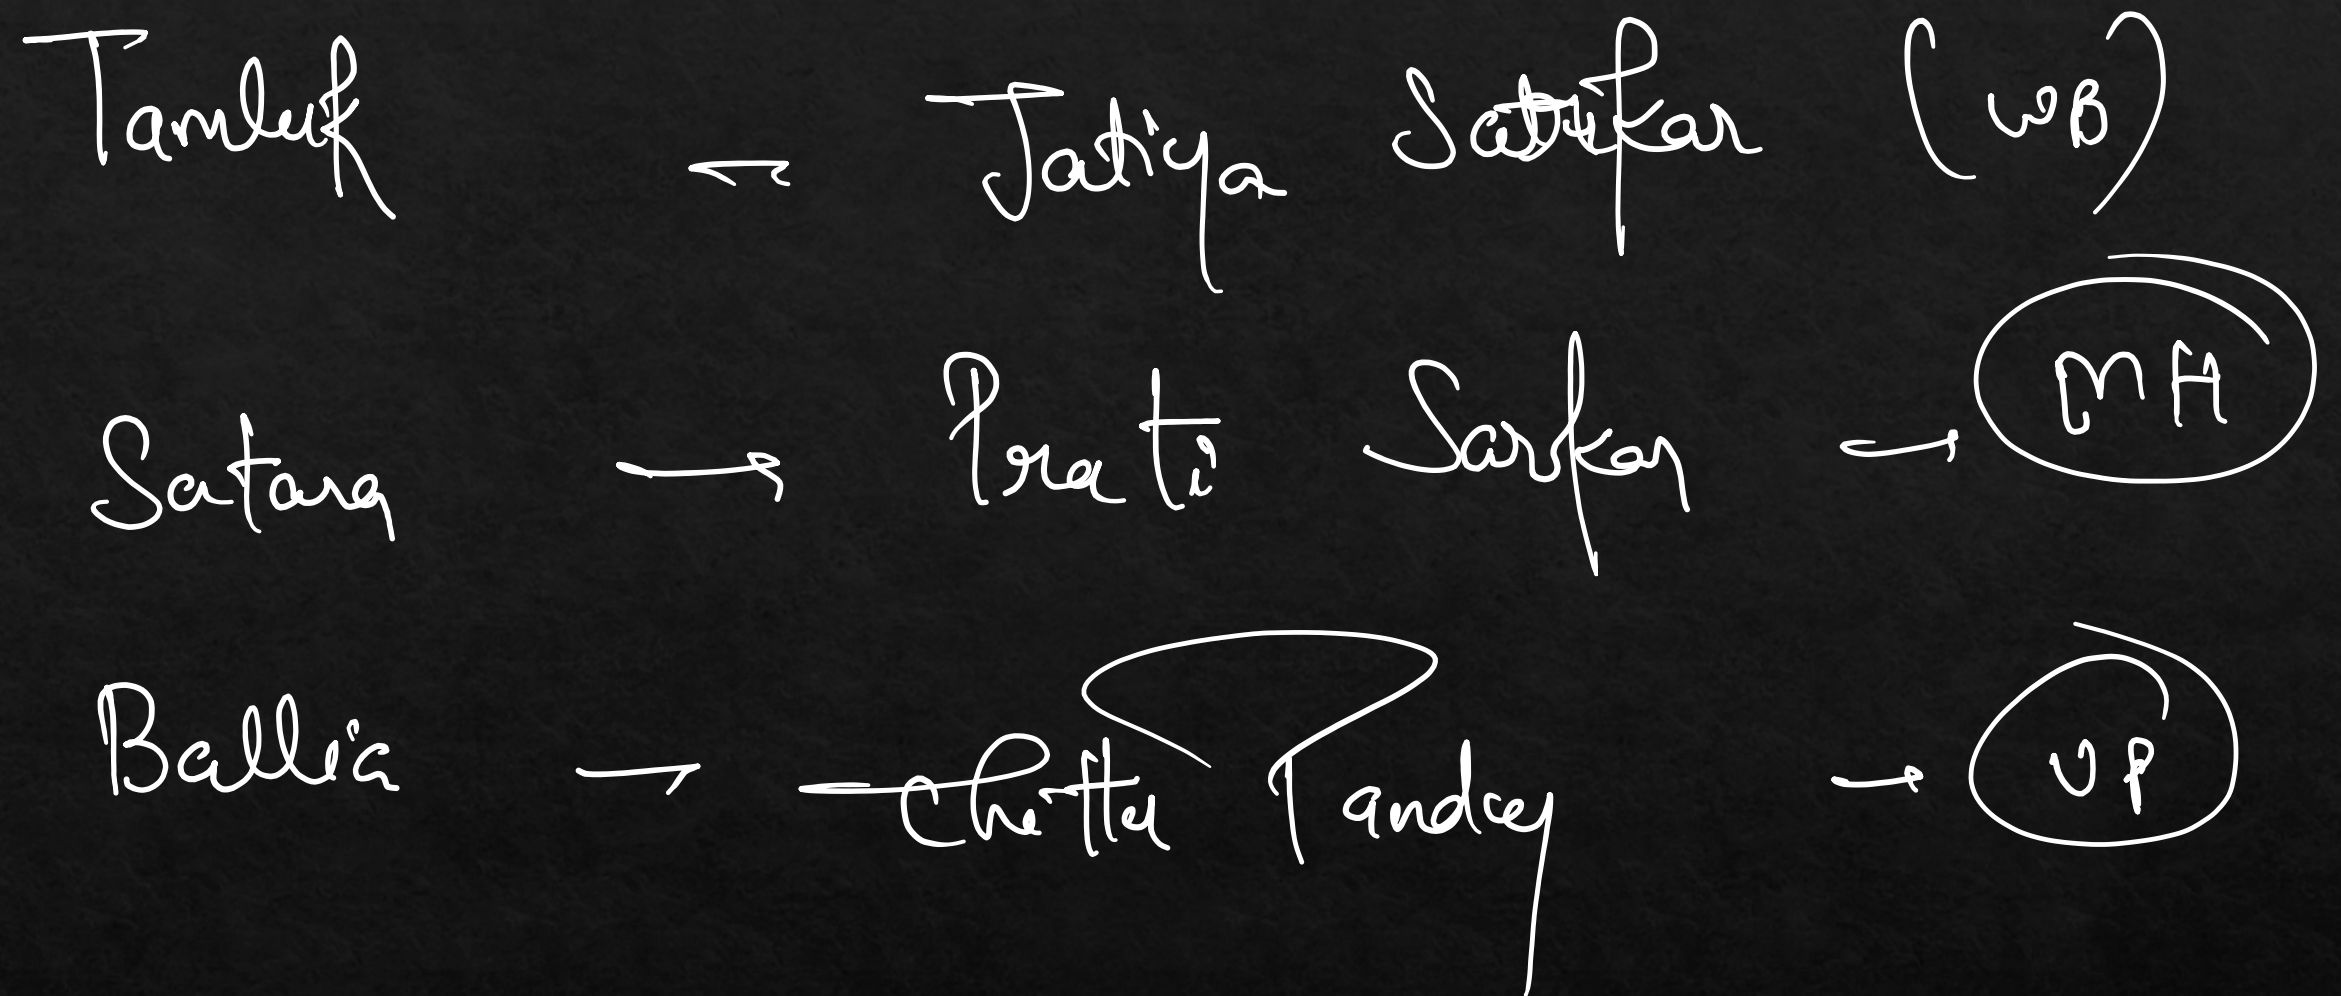 Tamluk - Jatiya Sarkar (WB)
Satara → Prati Sarkar → MH
Ballia → Chittu Pandey → UP